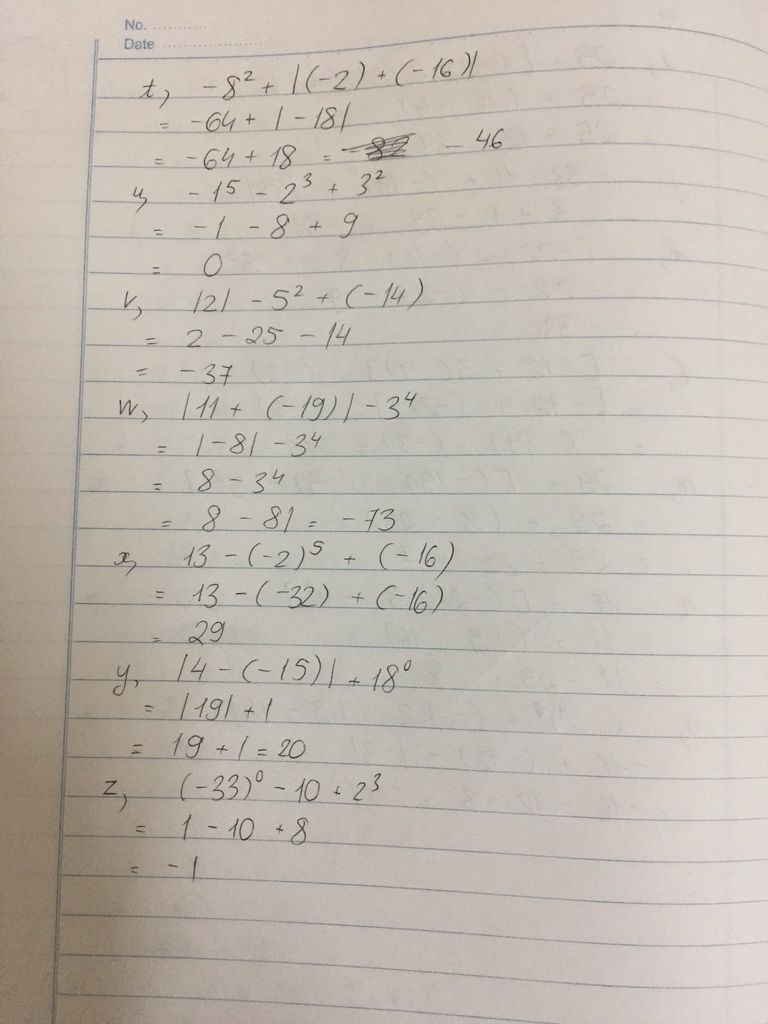 No. ............
Date ........................
t, -8² + |(-2) + (-16)|
= -64 + |-18|
= -64 + 18 = -46
y, -1⁵ - 2³ + 3²
= -1 - 8 + 9
= 0
v, |2| - 5² + (-14)
= 2 - 25 - 14
= -37
w, |11 + (-19)| - 3⁴
= |-8| - 3⁴
= 8 - 3⁴
= 8 - 81 = -73
x, 13 - (-2)⁵ + (-16)
= 13 - (-32) + (-16)
= 29
y, |4 - (-15)| + 18⁰
= |19| + 1
= 19 + 1 = 20
z, (-33)⁰ - 10 + 2³
= 1 - 10 + 8
= -1